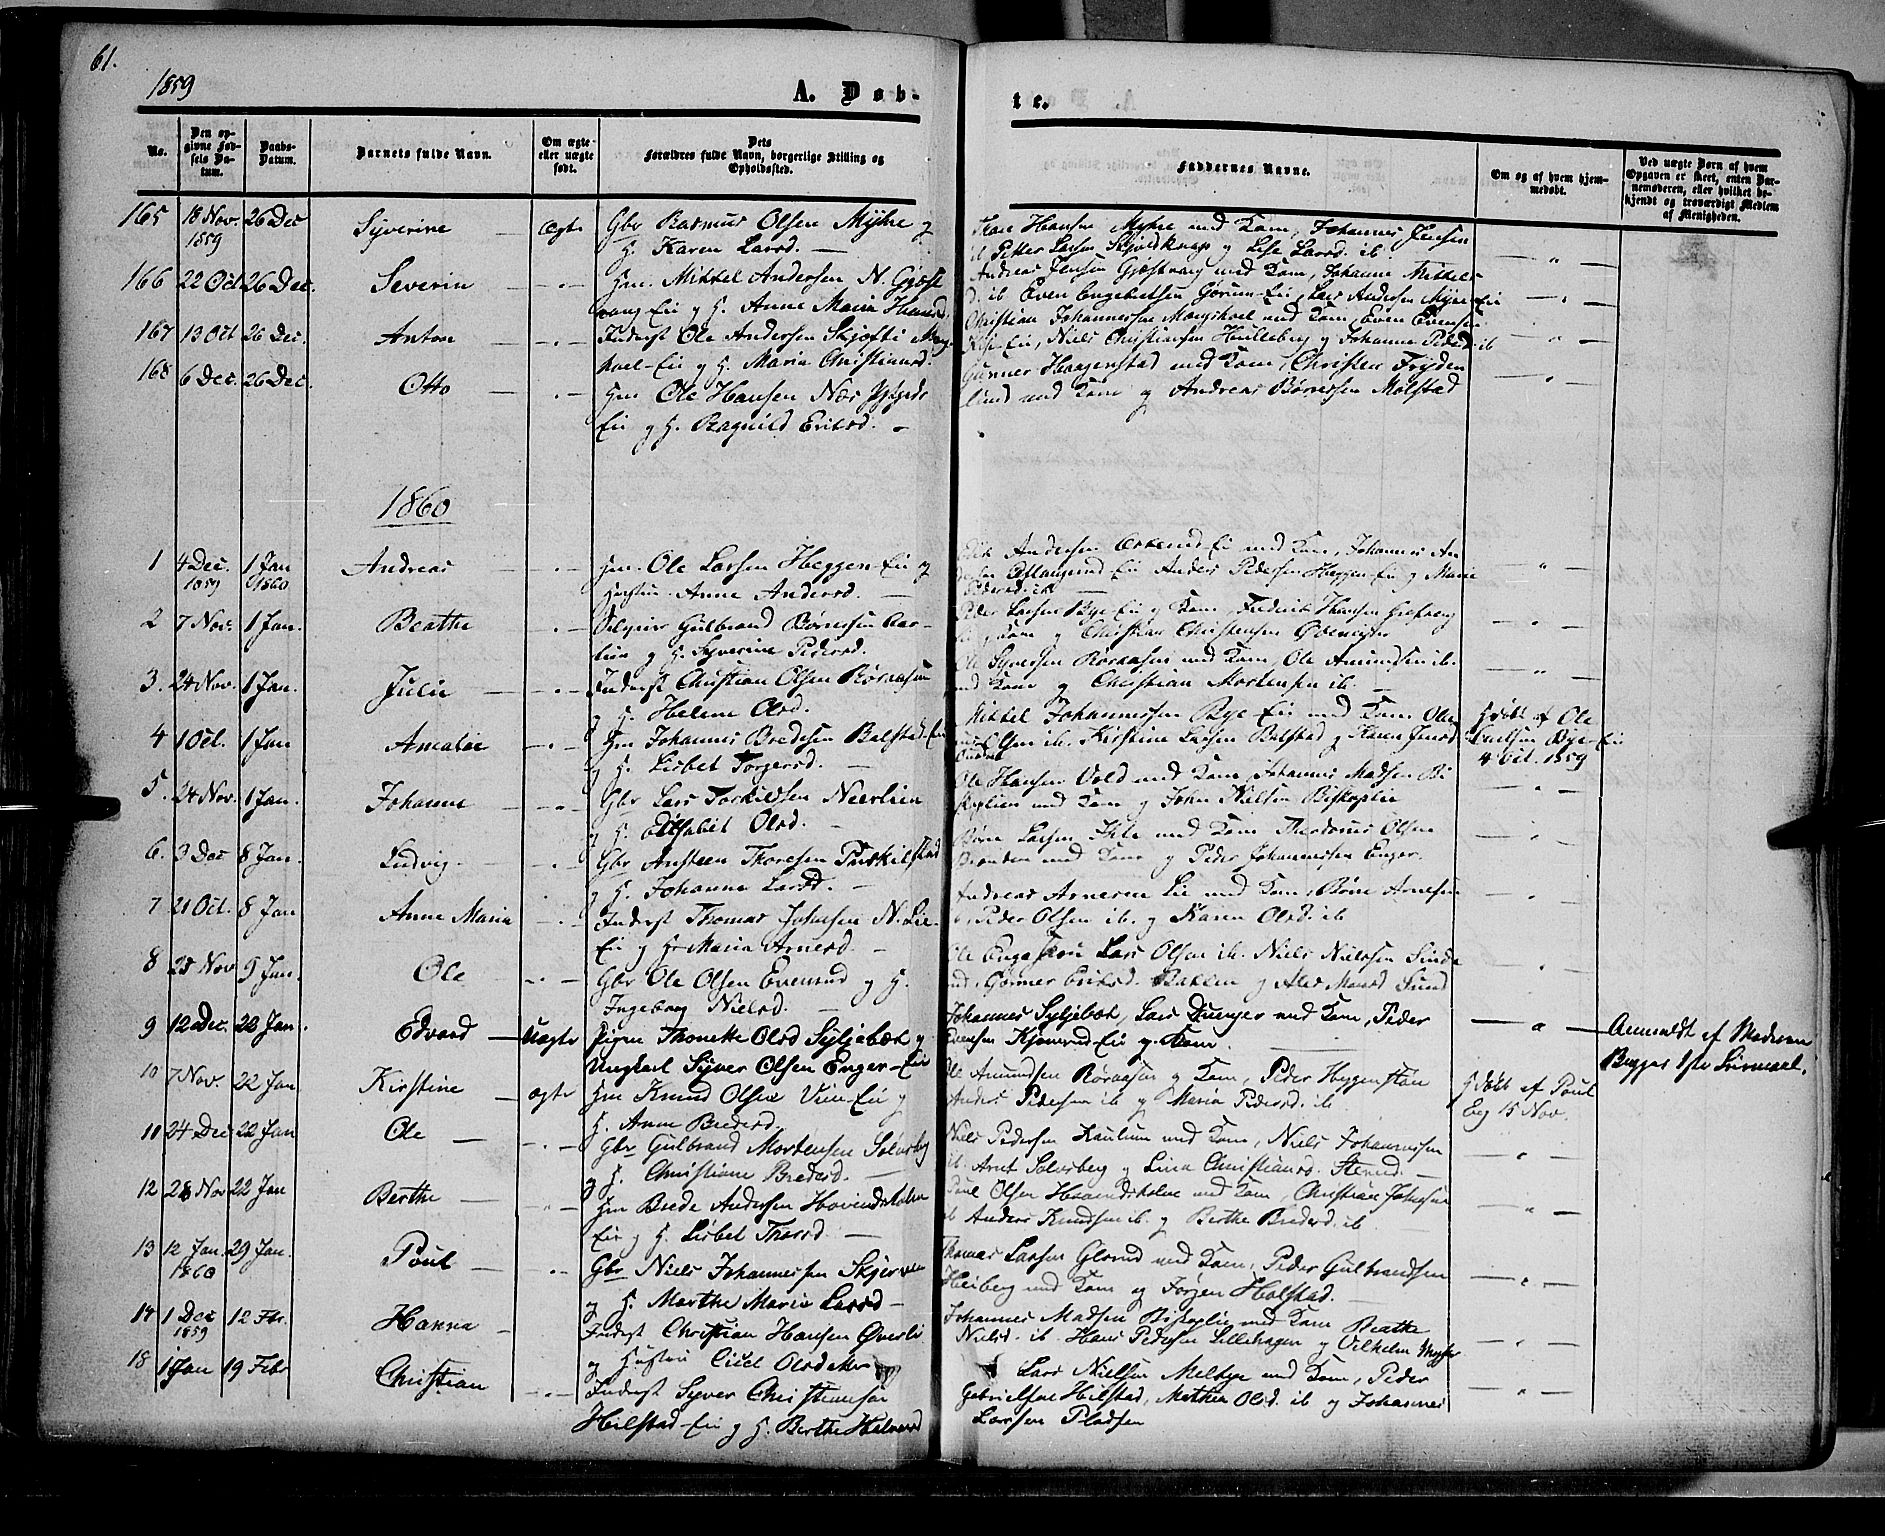 61.
1859
A. Døb-
te.
No.
Den op-
givne Fød-
sels Da-
tum.
Daabs-
Datum.
Barnets fulde Navn.
Om ægte
eller uægte
født.
Dets
Forældres fulde Navn, borgerlige Stilling og
Opholdssted.
Faddernes Navne.
Om og af hvem hjem-
medøbt.
Ved uægte Børn af hvem
Opgaven er skeet, enten Bar-
nemoderen, eller hvilket be-
kjendt og troværdigt Medlem
af Menigheden.
165 18 Nov. 26 Dec Syverine — ægte Gbr Rasmus Olsen Myhre og
1859 H. Karen Larsd. —
Hansen Myhre med Kone, Johannes Jensen
ib Petter Larsen Skjoldknap og Lise Larsd. ib
166 22 Oct 26 Dec. Severin — " — Hm. Mikkel Andersen N. Gjøst
vang Eie og H. Anne Maria Hansd.
Andreas Jensen Gjøstvang med Kone, Johanne Mikkels
d. ib Even Engebretsen Gorum-Eie, Lars Andersen Myhre-Eie
167 13 Oct 26 Dec. Anton — " — Inderst Ole Andersen Skjefti
Eie og H. Maria Christiansd.
Christian Johannessen med Kone, Even Evensen
Eie, Niels Christiansen Hulleberg og Johanne Pedersd ib
168 6 Dec. 26 Dec. Otto — " — Hm Ole Hansen Næs
Eie og H. Ragnild Eriksd. —
Gunner Haagenstad med Kone, Christen Fryden
lund med Kone og Andreas Børresen Molstad
1860
1 4 Dec. 1 Jan Andreas — " — Hm. Ole Larsen Heggen-Eie og
1859 1860 Hustru Anne Andersd. —
Andersen med Kone, Johannes An
Eie Anders Pedersen Heggen-Eie og Marie
Pedersd. ib —
2 7 Nov. 1 Jan. Beathe " — Selveier Gulbrand Børresen Aar-
lien og H. Syverine Pedersd.
Peder Larsen Bye-Eie og Kone, Frederik Hansen
Kone og Christian Christensen
3. 24 Nov. 1 Jan. Julie — " — Inderst Christian Olsen Røraasen
og H. Helene Olsd.
Ole Syversen Røraasen med Kone, Ole Amundsen ib.
med Kone og Christian Mortensen ib. —
4 1 Oct. 1 Jan Amalie — " — Hm Johannes Bredesen Balstad-Eie
og H. Lisbet Torgersd. —
Mikkel Johannessen Bye-Eie med Kone, Ole
Olsen ib. Kirstine Larsen Balstad og Karen Jensd
Hjdøbt af Ole
Bye-Eie
4 Oct. 1859
5. 24 Nov. 1 Jan. Johanne — " — Gbr Lars Torkildsen Neerlien
og H. Elisabet Olsd. —
Ole Hansen Vold med Kone, Johannes Madsen Bi
skoplien med Kone og John Nielsen Biskoplie
6. 3 Dec 8 Jan. Ludvig — " Gbr Austeen Thoresen
og H. Johanne Larsd. —
Børre Larsen med Kone Theodorus Olsen
Brænden med Kone og Peder Johannessen Enger.
7 21 Oct. 8 Jan Anne Maria " Inderst Thomas Johnsen N. Lie-
Eie og H. Maria Arnesd. —
Andreas Arnesen Lie med Kone, Børre Arnesen
Peder Olsen ib. og Karen Olsd. ib
8 25 Nov 9 Jan. Ole — " — Gbr Ole Olsen Evensrud og H.
Ingeborg Nielsd. —
Ole Engaskou Lars Olsen ib. Niels Nielssen
Gunner Eriksd. Bakken og
9 12 Dec. 22 Jan. Edvard — Uægte Pigen Thonette Olsd Syljebæk og
Ungkarl Syver Olsen Enger-Eie
Johannes Syljebæk, Lars Dunger med Kone, Peder
Evensen Kjønsrud-Eie og Kone.
Anmeldt af Moderen
Begges 1ste Leiermaal.
10 7 Nov. 22 Jan Kirstine — ægte Hm Knud Olsen Vien-Eie og
H. Anne Bredesd.
Ole Amundsen Røraasen og Kone, Peder Heggenstøen
Anders Pedersen ib og Maria Pedersd. ib
Hjdøbt af Poul
Eeg 15 Nov.
11 24 Dec 22 Jan Ole — " — Gbr Gulbrand Mortensen Solverberg
og H. Christiane Bredesd. —
Niels Pedersen Kaulum med Kone, Niels Johannessen
ib. Arnt Solverberg og Lina Christiansd. Stenrud. —
12 28 Nov 22 Jan Berthe — " — Hm Brede Andersen Hovindsholm
Eie og H. Lisbet Thorsd. —
Poul Olsen Hovindsholm med Kone, Christian Johnsen
ib Anders Knudsen ib. og Berthe Bredesd. ib
13 12 Jan. 29 Jan. Poul — " — Gbr Niels Johannessen
1860 og H. Marthe Maria Larsd —
Thomas Larsen Glorud med Kone, Peder Gulbrandsen
Heiberg med Kone og Jørgen Holstad. —
14 1 Dec 12 Fbr. Hanna — Inderst Christian Hansen Øverli
1859 og Hustru Olsd
Johannes Madsen Biskoplie med Kone Beathe
Nielsd. ib. Hans Pedersen Lillehagen og Vilhelm
18 1 Jan 19 Febr Christian — " — Inderst Syver Christiansen
Hilstad-Eie og H. Berthe Halvorsd
Lars Nielsen Melbye med Kone, Peder
Gabrielsen Hilstad, Mathea Olsd. ib og Johannes
Larsen Pladsen